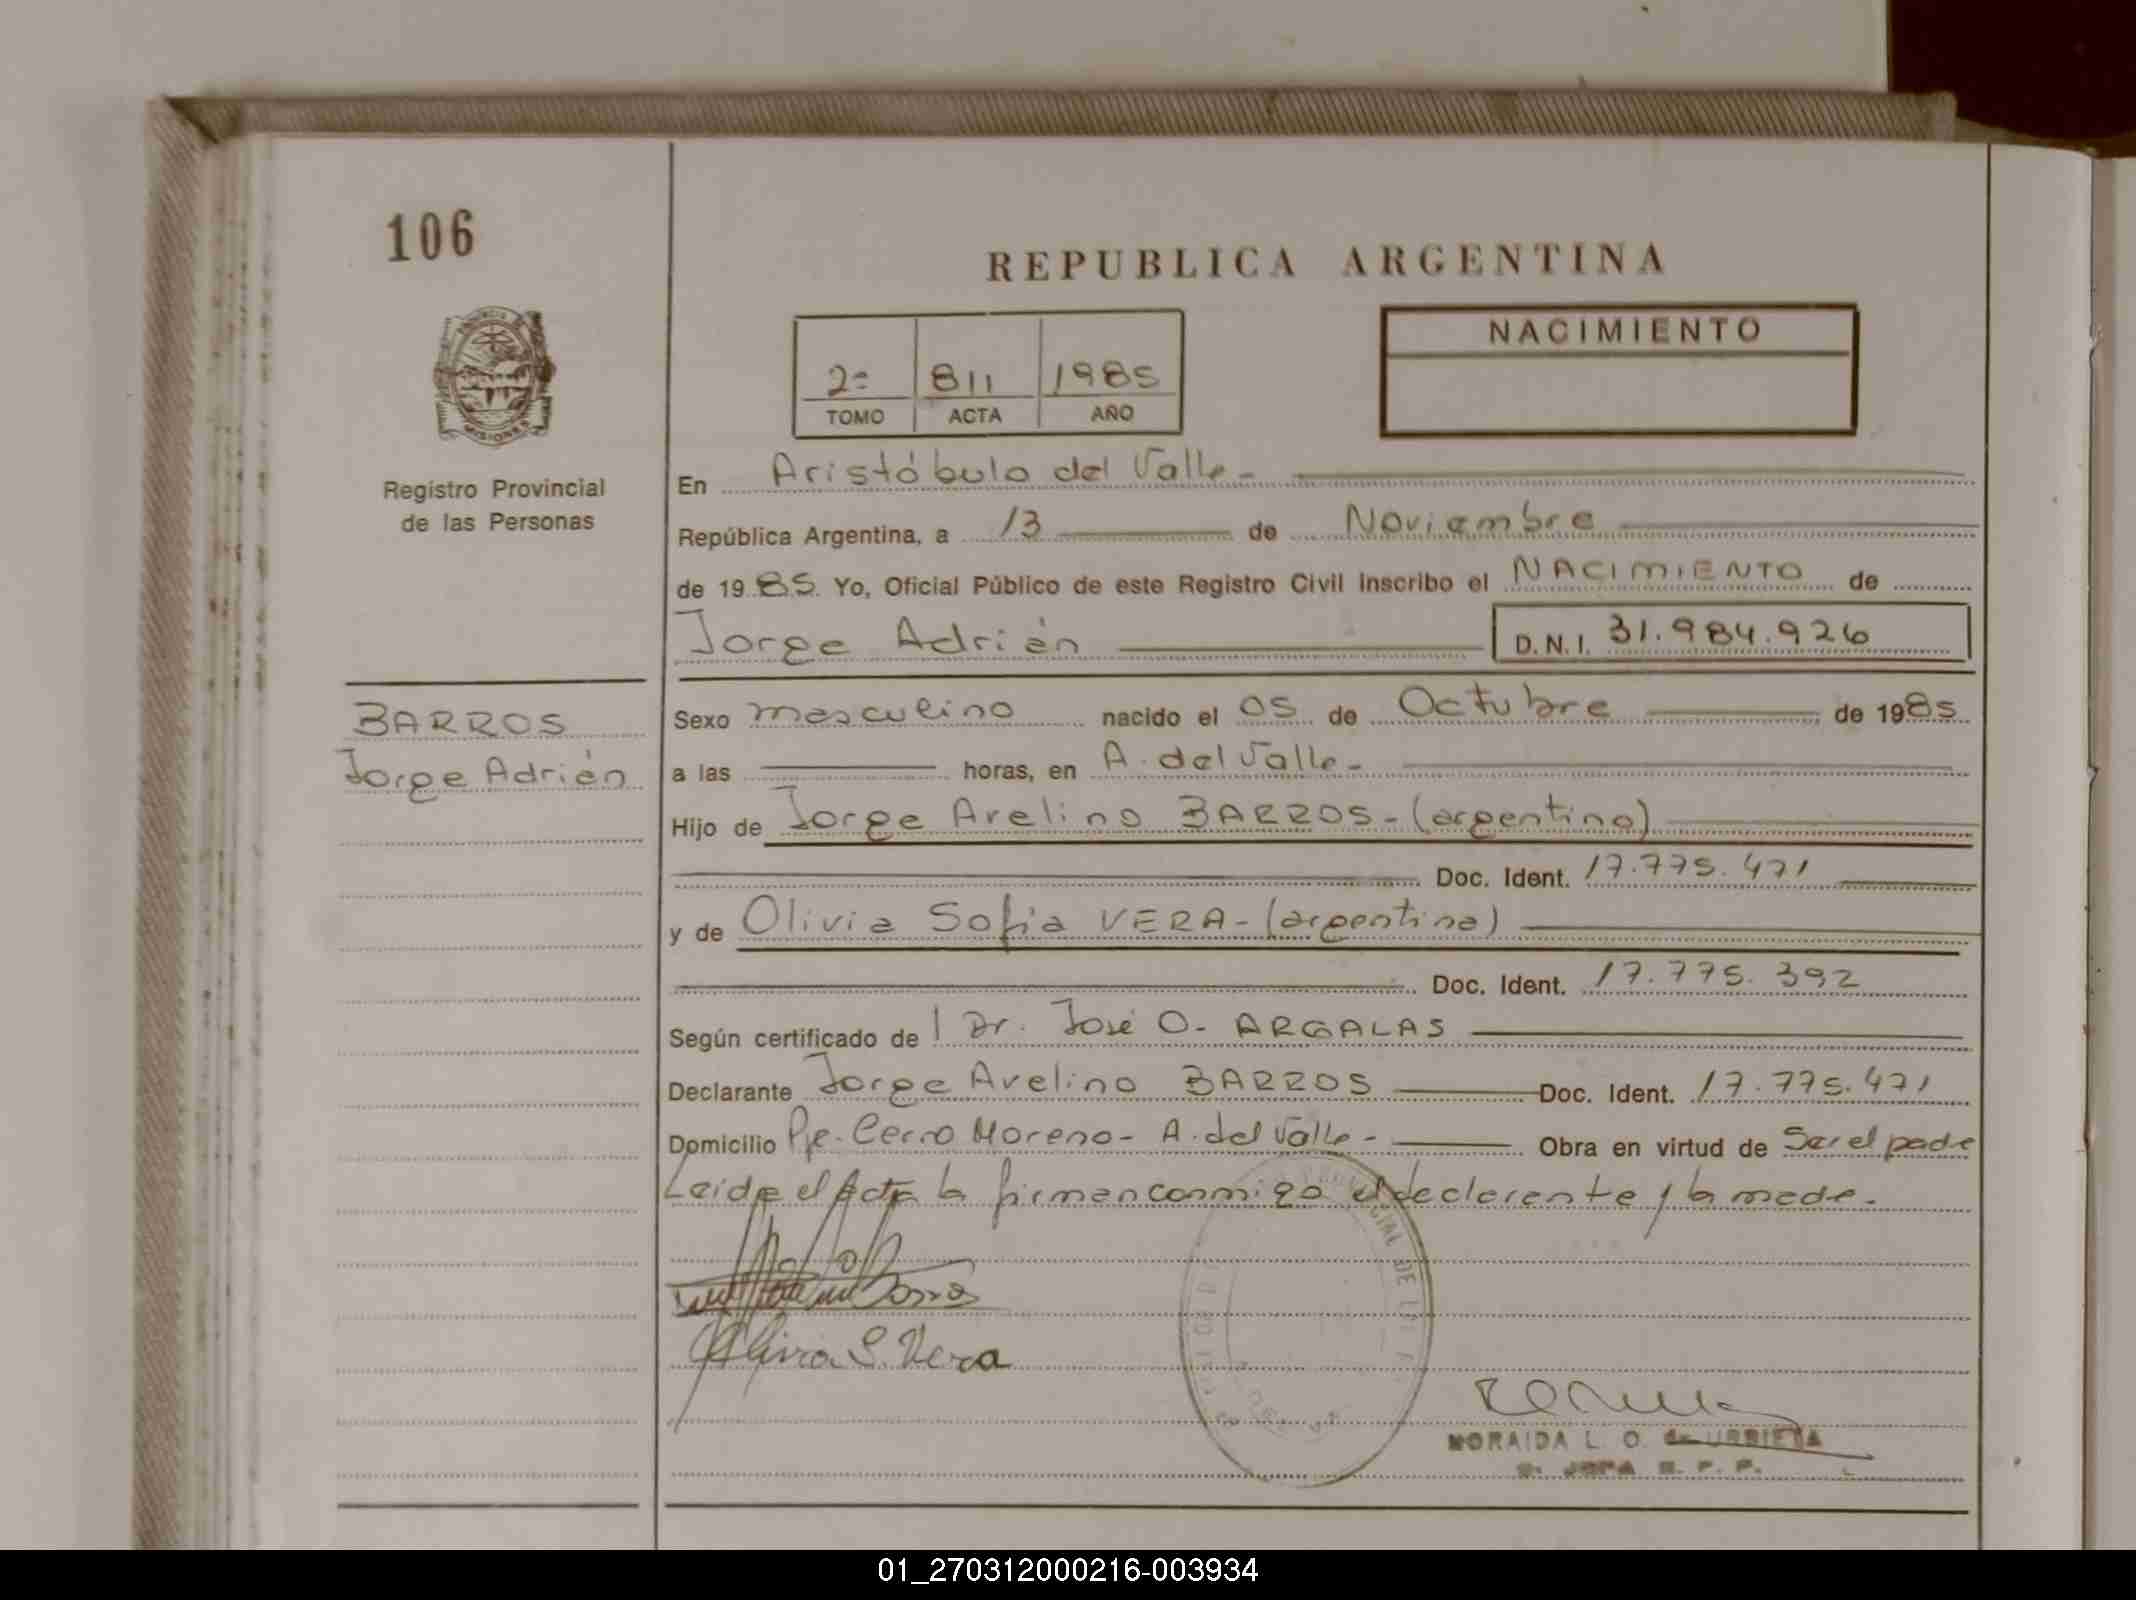 106
REPUBLICA ARGENTINA
NACIMIENTO
2º 811 1985
TOMO ACTA AÑO
MISIONES
Registro Provincial
de las Personas
En Aristóbulo del Valle -
República Argentina, a 13 de Noviembre
de 1985. Yo, Oficial Público de este Registro Civil Inscribo el NACIMIENTO de
Jorge Adrián D.N.I. 31.984.926
BARROS
Jorge Adrián
Sexo masculino nacido el 05 de Octubre de 1985
a las horas, en A. del Valle -
Hijo de Jorge Avelino BARROS - (argentino)
Doc. Ident. 17.775.471
y de Olivia Sofia VERA - (argentina)
Doc. Ident. 17.775.392
Según certificado de Dr. José O. ARGALAS
Declarante Jorge Avelino BARROS Doc. Ident. 17.775.471
Domicilio Pje. Cerro Moreno - A. del Valle - Obra en virtud de Ser el padre
Leida el Acta la firman conmigo el declarante y la madre.
Olivia S. Vera
NORAIDA L. O. de URRIETA
01_270312000216-003934